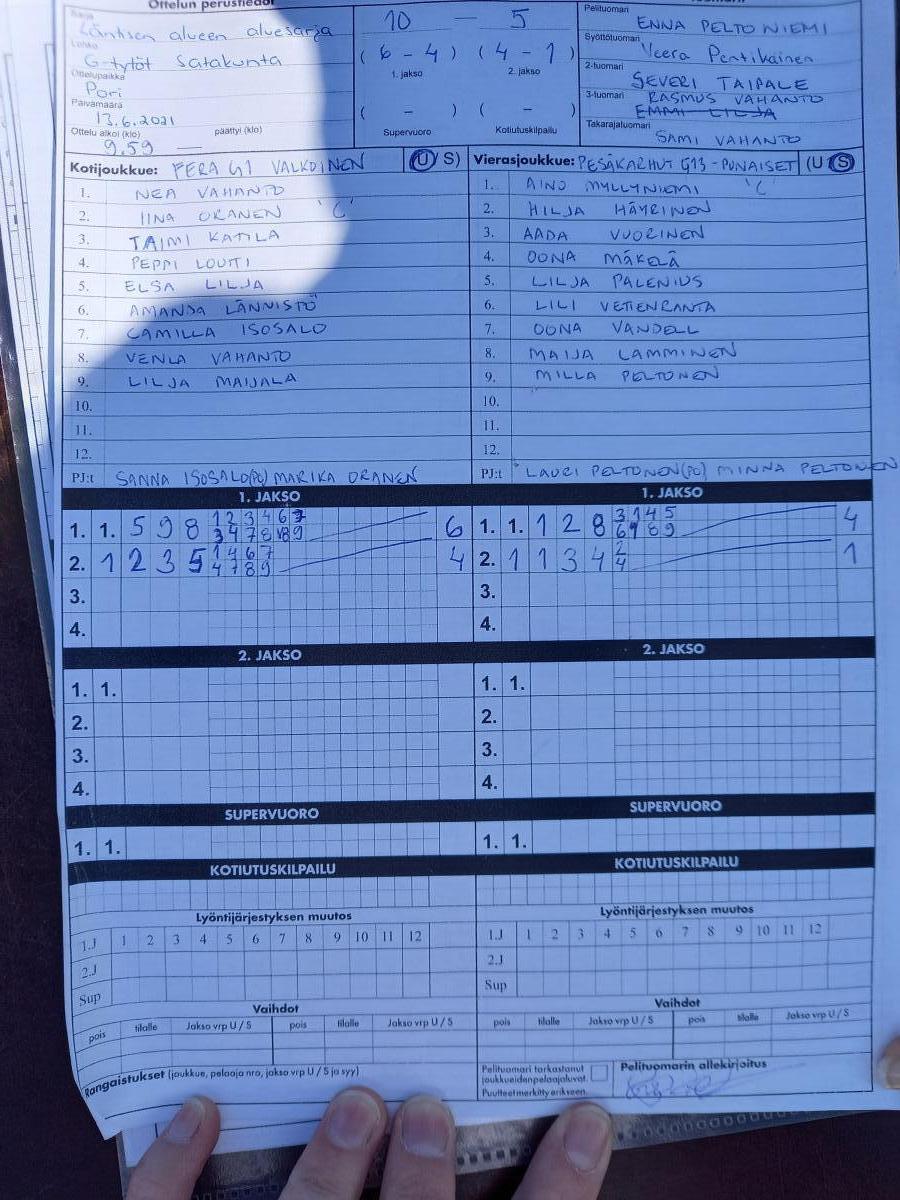 Ottelun perustiedot
Sarja
Läntisen alueen aluesarja
Lohko
G-tytöt Satakunta
Ottelupaikka
Pori
Päivämäärä
13.6.2021
Ottelu alkoi (klo) päättyi (klo)
9.59 —
10 — 5
(6 - 4) (4 - 1)
1. jakso 2. jakso
( - ) ( - )
Supervuoro Kotiutuskilpailu
Pelituomari ENNA PELTONIEMI
Syöttötuomari Veera Pentikäinen
2-tuomari SEVERI TAIPALE
3-tuomari RASMUS VAHANTO
EMMI LILJA
Takarajatuomari SAMI VAHANTO
Kotijoukkue: FERA G1 VALKOINEN (U S)
1. NEA VAHANTO
2. IINA ORANEN 'C'
3. TAIMI KATILA
4. PEPPI LOUTI
5. ELSA LILJA
6. AMANDA LÄNNISTÖ
7. CAMILLA ISOSALO
8. VENLA VAHANTO
9. LILJA MAIJALA
10.
11.
12.
PJ:t SANNA ISOSALO(PJ) MARIKA ORANEN
Vierasjoukkue: PESÄKARHUT G13-PUNAISET (U S)
1. AINO MYLLYNIEMI 'C'
2. HILJA HÄYRINEN
3. AADA VUORINEN
4. OONA MÄKELÄ
5. LILJA PALENIUS
6. LILI VETENRANTA
7. OONA VANDELL
8. MAIJA LAMMINEN
9. MILLA PELTONEN
10.
11.
12.
PJ:t LAURI PELTONEN(PJ) MINNA PELTONEN
1. JAKSO
1. 1. 5 9 8 1 2 3 4 6 7 6
3 4 7 8 9
2. 1 2 3 5 1 4 6 7 4
4 7 8 9
3.
4.
1. JAKSO
1. 1. 1 2 8 3 1 4 5 4
6 7 8 9
2. 1 1 3 4 2 1
4
3.
4.
2. JAKSO
1. 1.
2.
3.
4.
2. JAKSO
1. 1.
2.
3.
4.
SUPERVUORO
1. 1.
SUPERVUORO
1. 1.
KOTIUTUSKILPAILU
KOTIUTUSKILPAILU
Lyöntijärjestyksen muutos
1.J 1 2 3 4 5 6 7 8 9 10 11 12
2.J
Sup
Lyöntijärjestyksen muutos
1.J 1 2 3 4 5 6 7 8 9 10 11 12
2.J
Sup
Vaihdot
pois tilalle Jakso vrp U / S pois tilalle Jakso vrp U / S
Vaihdot
pois tilalle Jakso vrp U / S pois tilalle Jakso vrp U / S
Rangaistukset (joukkue, pelaaja nro, jakso vrp U / S ja syy)
Pelituomari tarkastanut
joukkueiden pelaajaluvat.
Puutteet merkitty erikseen.
Pelituomarin allekirjoitus